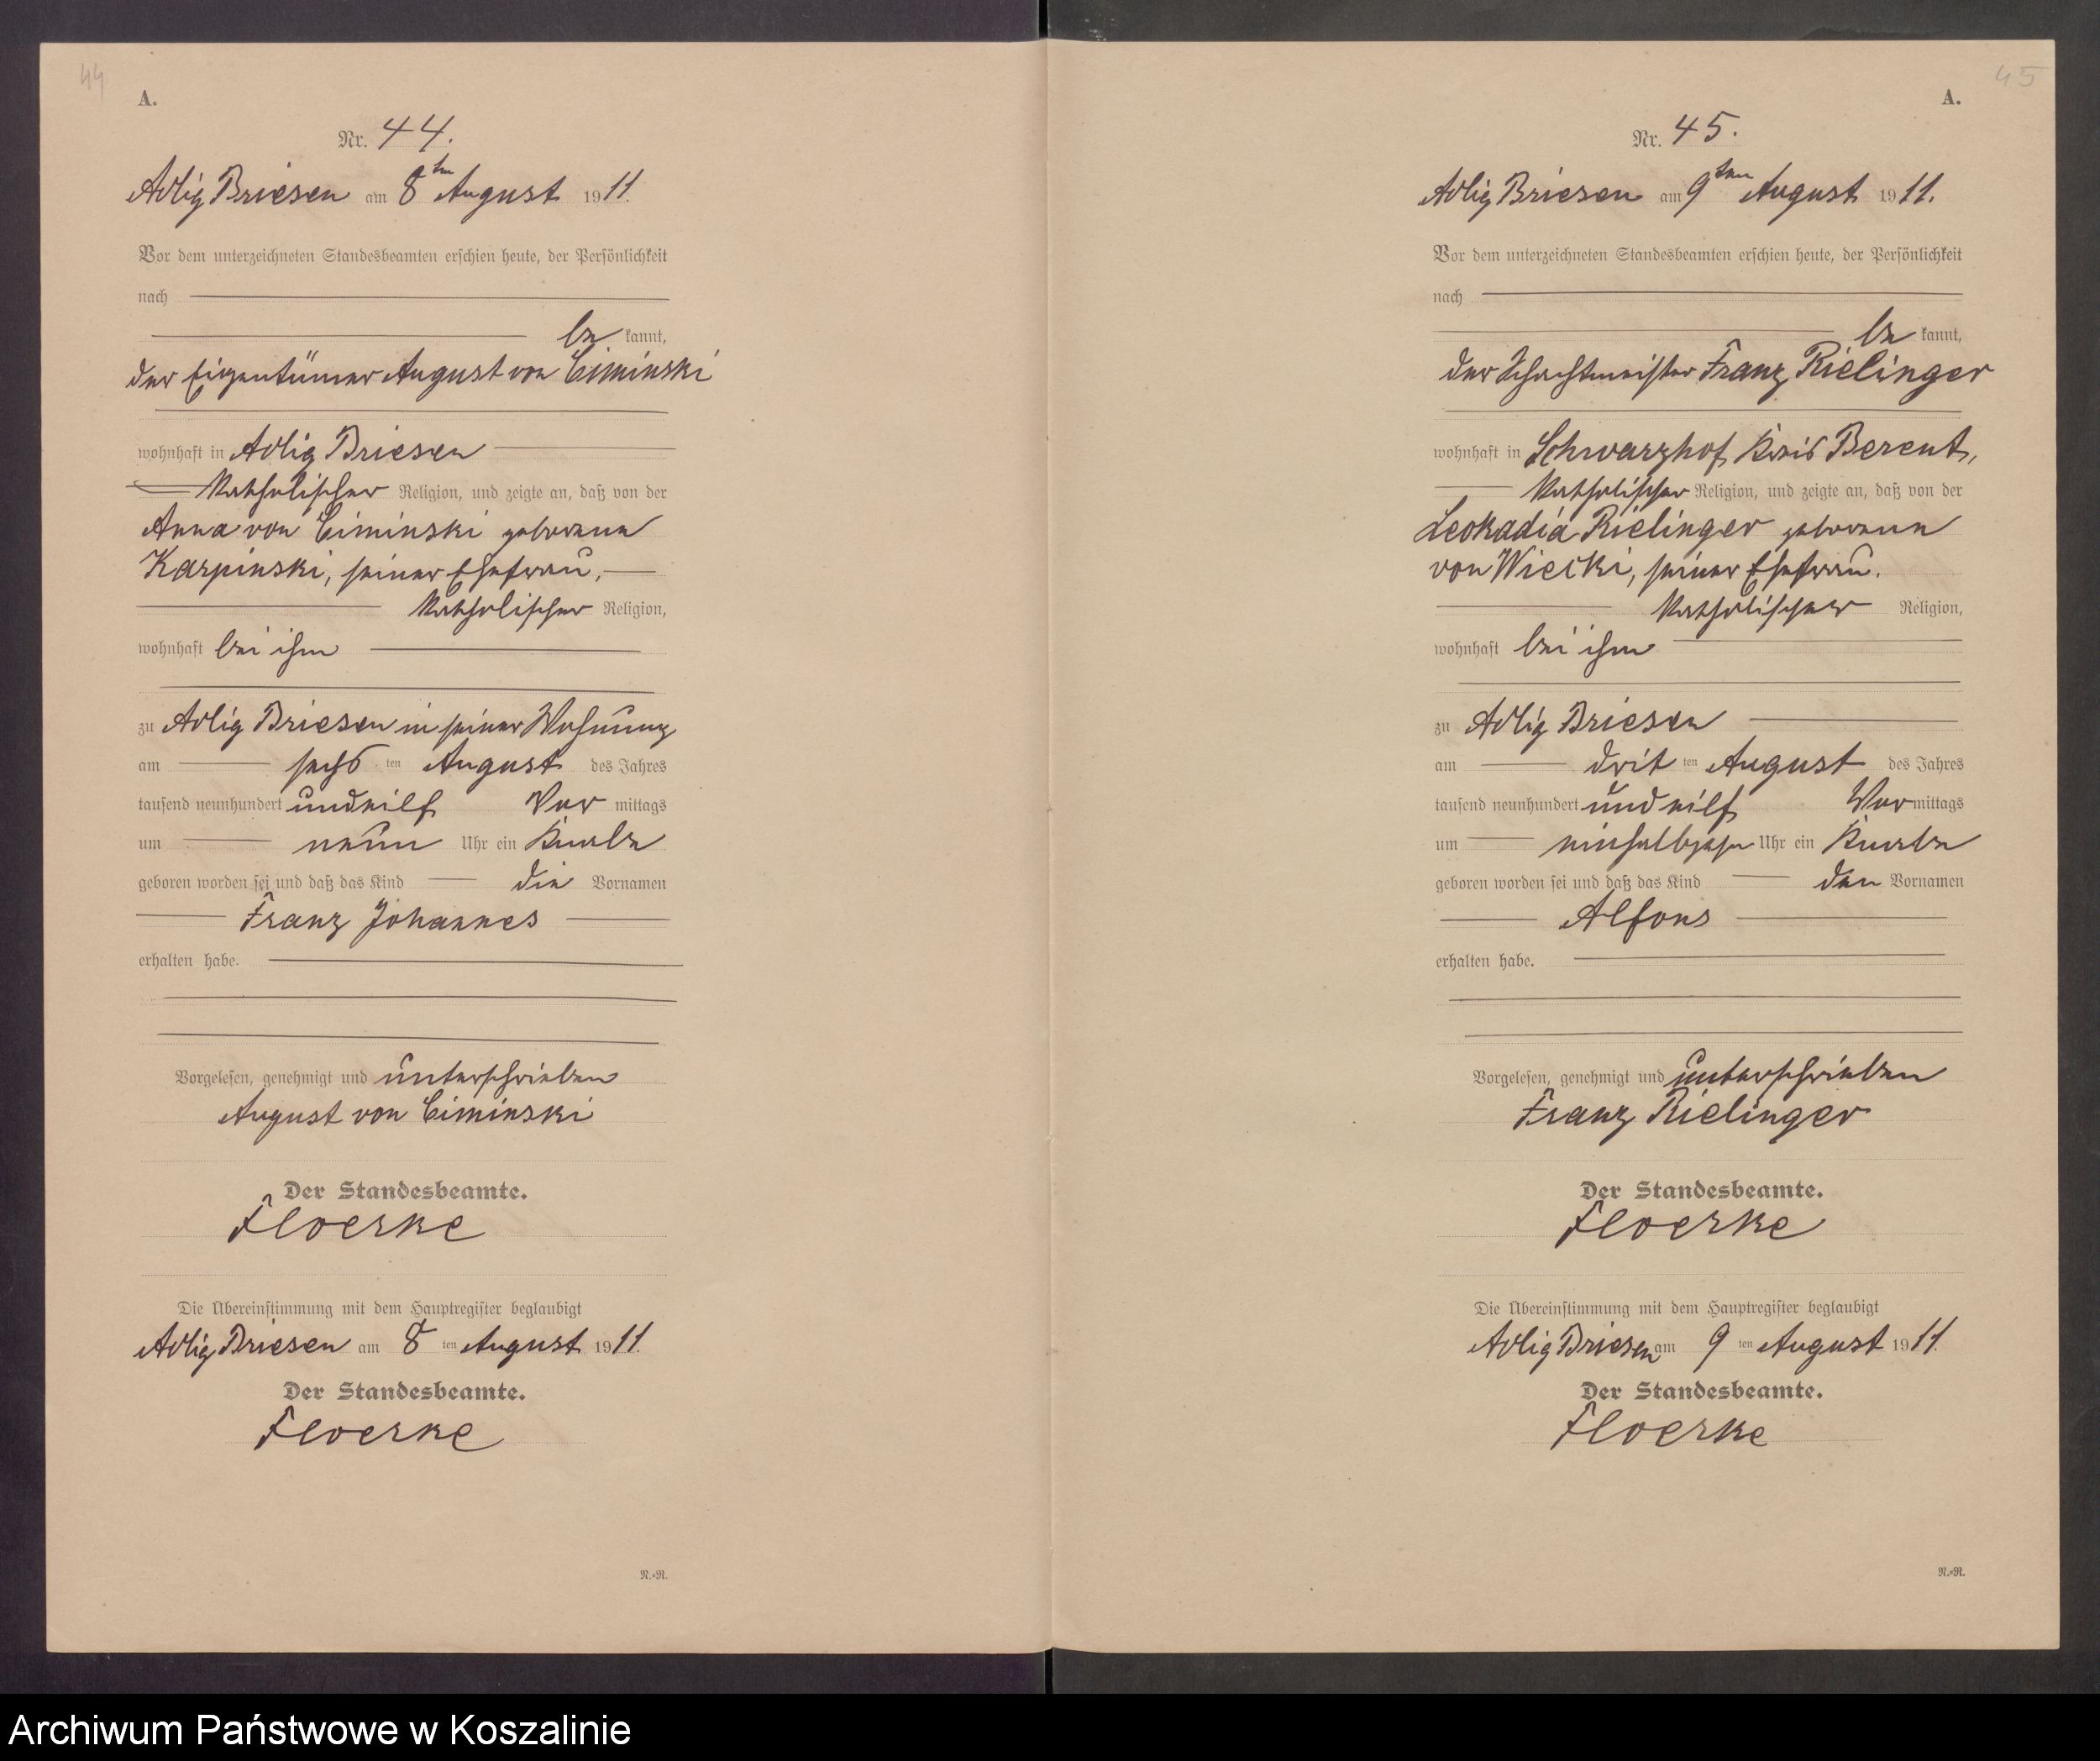 44
A.
Nr. 44.
Adlig Briesen am 8ten August 1911.
Vor dem unterzeichneten Standesbeamten erschien heute, der Persönlichkeit
nach
be kannt,
der Eigentümer August von Ciminski
wohnhaft in Adlig Briesen
katholischer Religion, und zeigte an, daß von der
Anna von Ciminski geborene
Karpinski, seiner Ehefrau,
katholischer Religion,
wohnhaft bei ihm
zu Adlig Briesen in seiner Wohnung
am sechs ten August des Jahres
tausend neunhundert und eilf Vor mittags
um neun Uhr ein Knabe
geboren worden sei und daß das Kind die Vornamen
Franz Johannes
erhalten habe.
Vorgelesen, genehmigt und unterschrieben
August von Ciminski
Der Standesbeamte.
Floerke
Die Übereinstimmung mit dem Hauptregister beglaubigt
Adlig Briesen am 8 ten August 1911.
Der Standesbeamte.
Floerke
N.=R.
45
A.
Nr. 45.
Adlig Briesen am 9ten August 1911.
Vor dem unterzeichneten Standesbeamten erschien heute, der Persönlichkeit
nach
be kannt,
der Schachtmeister Franz Rielinger
wohnhaft in Schwarzhof, Kreis Berent,
katholischer Religion, und zeigte an, daß von der
Leokadia Rielinger geborene
von Wiecki, seiner Ehefrau.
katholischer Religion,
wohnhaft bei ihm
zu Adlig Briesen
am drit ten August des Jahres
tausend neunhundert und eilf Vor mittags
um einhalbzehn Uhr ein Knabe
geboren worden sei und daß das Kind den Vornamen
Alfons
erhalten habe.
Vorgelesen, genehmigt und unterschrieben
Franz Rielinger
Der Standesbeamte.
Floerke
Die Übereinstimmung mit dem Hauptregister beglaubigt
Adlig Briesen am 9 ten August 1911.
Der Standesbeamte.
Floerke
N.=R.
Archiwum Państwowe w Koszalinie